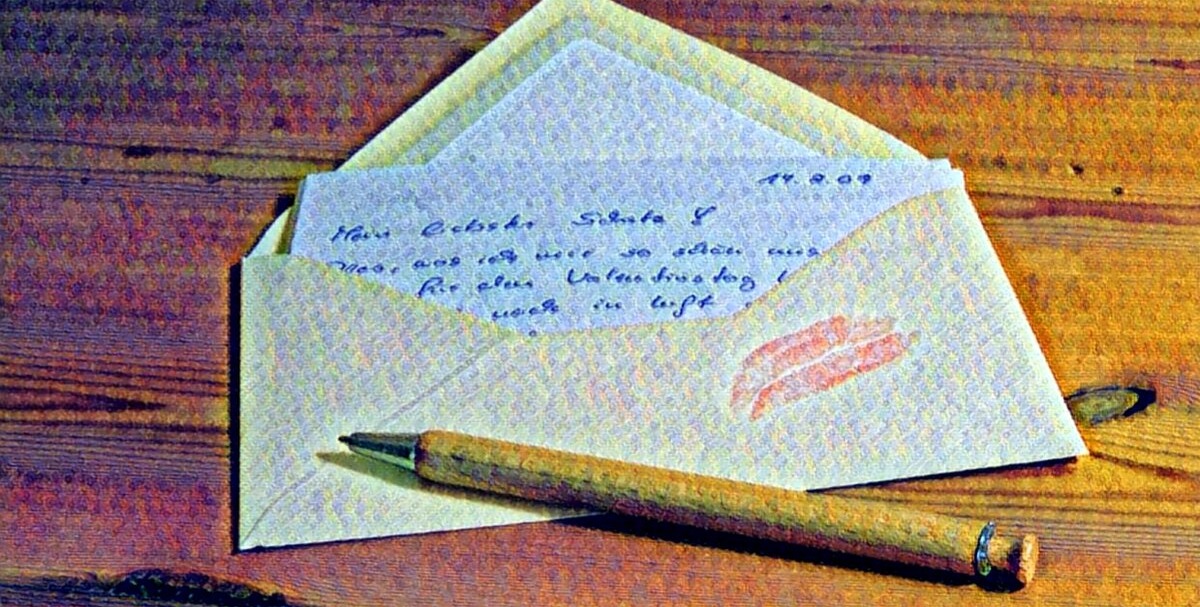 14.2.09
Mein liebster Schatz!
was ich mir so schön
für den Valentinstag
in Luft